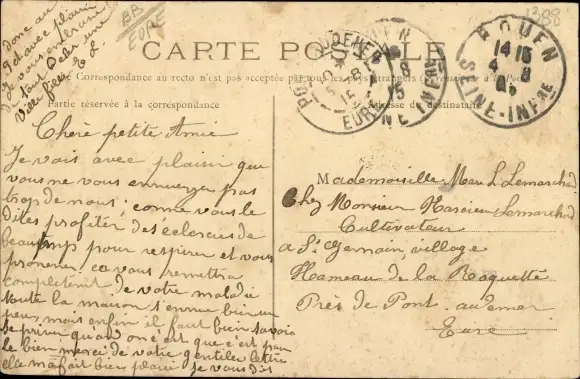 donc au
je vous
tout
BB
EURE
1388
CARTE POSTALE
Correspondance au recto n'est pas acceptée par tous les pays étrangers
Partie réservée à la correspondance
Adresse du destinataire
ROUEN
14 15
4 8
SEINE-INFRE
EURE
15
Chère petite Amie
Je vois avec plaisir que
vous ne vous ennuyez pas
trop de nous; comme vous le
dites profiter des éclercies de
beautemp pour respirer et vous
promener ca vous remettra
completment de votre maladie
toute la maison s'ennuie bien un
peu, mais enfin il faut bien savoir
se priver quand on est que c'est pour
le bien merci de votre gentille lettre
ela ma fait bien plaisir je vous dis
Mademoiselle L Lemarchand
Chez Monsieur Lemarchand
Cultivateur
a St Germain, village
Hameau de la Roquette
Près de Pont. audemer
Eure